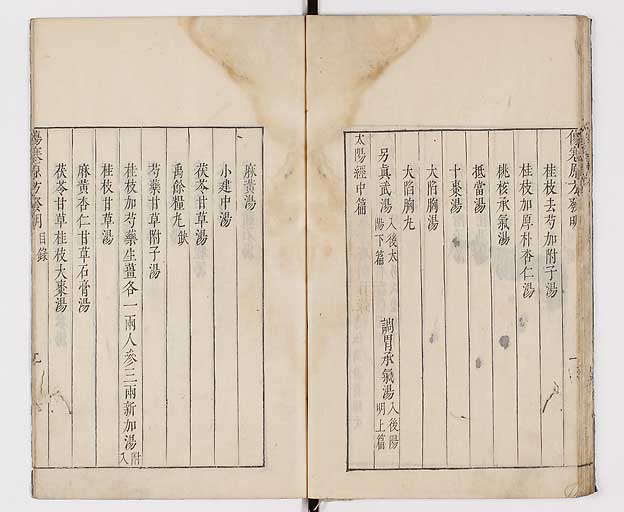 傷寒原方發明
桂枝去芍加附子湯
桂枝加厚朴杏仁湯
桃核承氣湯
抵當湯
十棗湯
大陷胸湯
大陷胸丸
另眞武湯入後太陽下篇 調胃承氣湯入後陽明上篇
太陽經中篇
麻黃湯
小建中湯
茯苓甘草湯
禹餘糧丸缺
芍藥甘草附子湯
桂枝加芍藥生薑各一兩人參三兩新加湯附入
桂枝甘草湯
麻黃杏仁甘草石膏湯
茯苓甘草桂枝大棗湯
傷寒原方發明 目錄